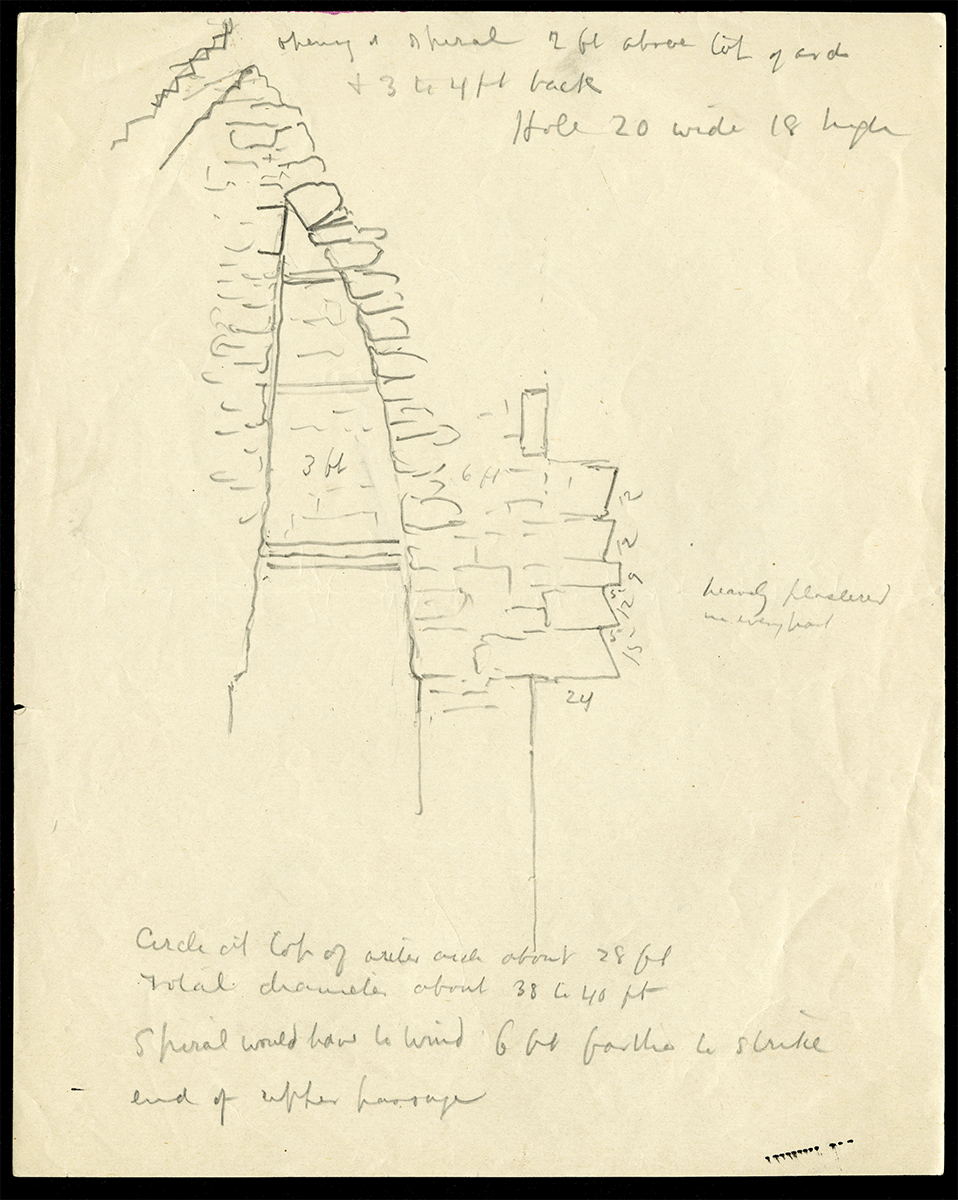 opening of spiral 2 ft above top of arch
+ 3 to 4 ft back
Hole 20 wide 18 high
3 ft
6 ft
12
12
9
5
12
5
15
24
heavily plastered
in every part
Circle at top of outer arch about 28 ft
Total diameter about 38 to 40 ft
Spiral would have to wind 6 ft farther to strike
end of upper passage